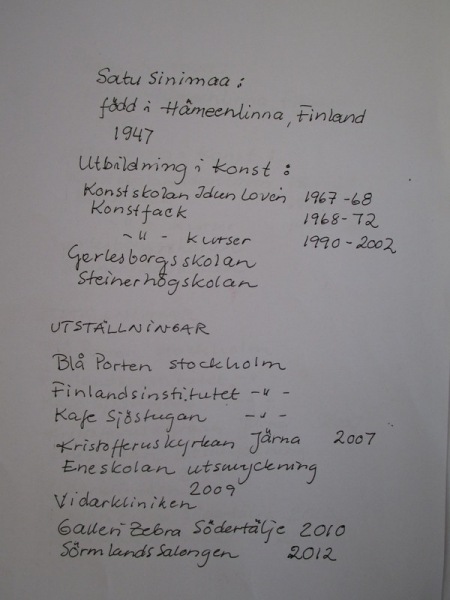 Satu Sinimaa:
född i Hämeenlinna, Finland
1947
Utbildning i konst:
Konstskolan Idun Lovén 1967-68
Konstfack 1968-72
-"- kurser 1990-2002
Gerlesborgsskolan
Steinerhögskolan
UTSTÄLLNINGAR
Blå Porten stockholm
Finlandsinstitutet -"-
Kafe Sjöstugan -"-
Kristofferuskyrkan Järna 2007
Eneskolan utsmyckning
2009
Vidarkliniken
Galleri Zebra Södertälje 2010
Sörmlands Salongen 2012